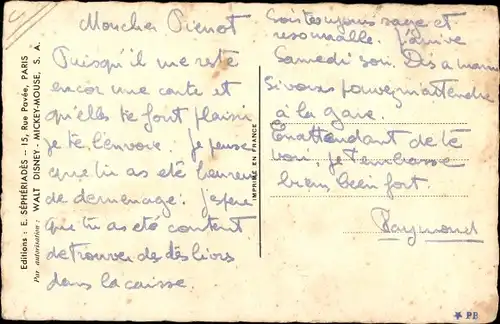 Mon cher Pierrot
Puisqu'il me reste
encor une carte et
qu'elles te font plaisir
je te l'envoie. Je pense
que tu as été heureux
de demenage. J'espère
que tu as été content
de trouver de dés livres
dans la caisse.
Sois toujours sage et
resonnable. J'arrive
Samedi soir. Dès a
Si vous pouvez m'attendre
à la gare.
En attendant de te
voir, je t'embrasse
bien, bien fort
Raymond
Editions : E. SÉPHÉRIADÈS — 15, Rue Pavée, PARIS
Par autorisation : WALT DISNEY - MICKEY-MOUSE, S. A.
IMPRIMÉ EN FRANCE
★ PB